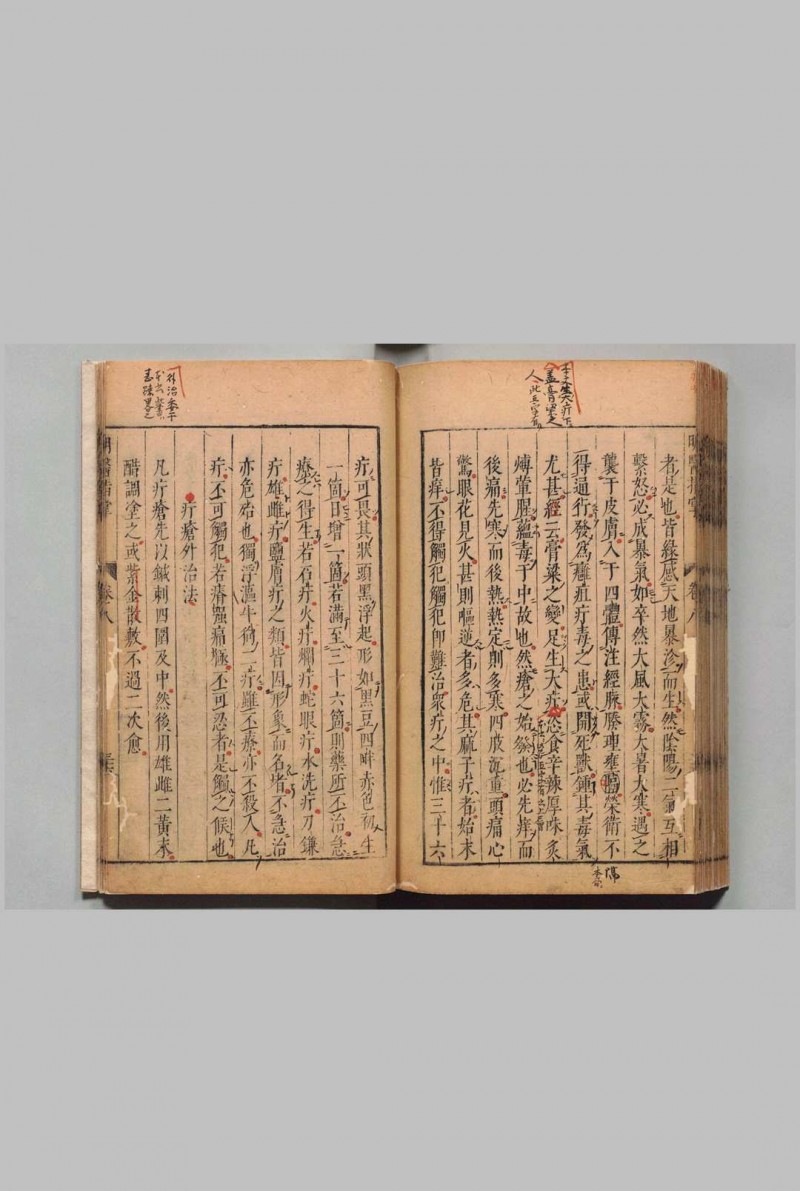 者是也皆緣感天地暴沴而生然陰陽二氣互相
繫怒必成暴氣如卒然大風大霧大暑大寒遇之
襲于皮膚入于四體傳注經脉腠理壅膈榮衛不
得通行發爲癰疽疔毒之患或開死獸鍾其毒氣
尤甚經云膏粱之變足生大疔恣食辛辣厚味炙
煿葷腥蘊毒于中故也然瘡之始發也必先痒而
後痛先寒而後熱熱定則多寒四肢沉重頭痛心
驚眼花見火甚則嘔逆者多危其麻子疔者始末
皆痒不得觸犯觸犯卽難治衆疔之中惟三十六
疔可畏其狀頭黑浮起形如黑豆四畔赤色初生
一箇日增一箇若滿至三十六箇則藥所不治急
療之得生若石疔火疔爛疔蛇眼疔水洗疔刀鎌
疔雄雌疔鹽膚疔之類皆因形象而名堵不急治
亦危殆也獨浮漚牛狗二疔雖不療亦不殺人凡
疔不可觸犯若瘡强痛驟不可忍者是觸之候也
疔瘡外治法
凡疔瘡先以鍼刺四圍及中然後用雄雌二黃末
醋調塗之或紫金散敷不過二次愈
明醫指掌
卷八